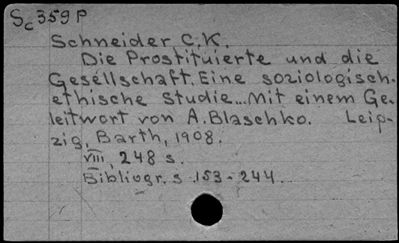 Sc 359 P
Schneider C.K.
Die Prostituierte und die
Gesellschaft. Eine soziologisch-
ethische Studie... Mit einem Ge-
leitwort von A. Blaschko. Leip-
zig, Barth, 1908.
VIII, 248 s.
Bibliogr. s 153-244.